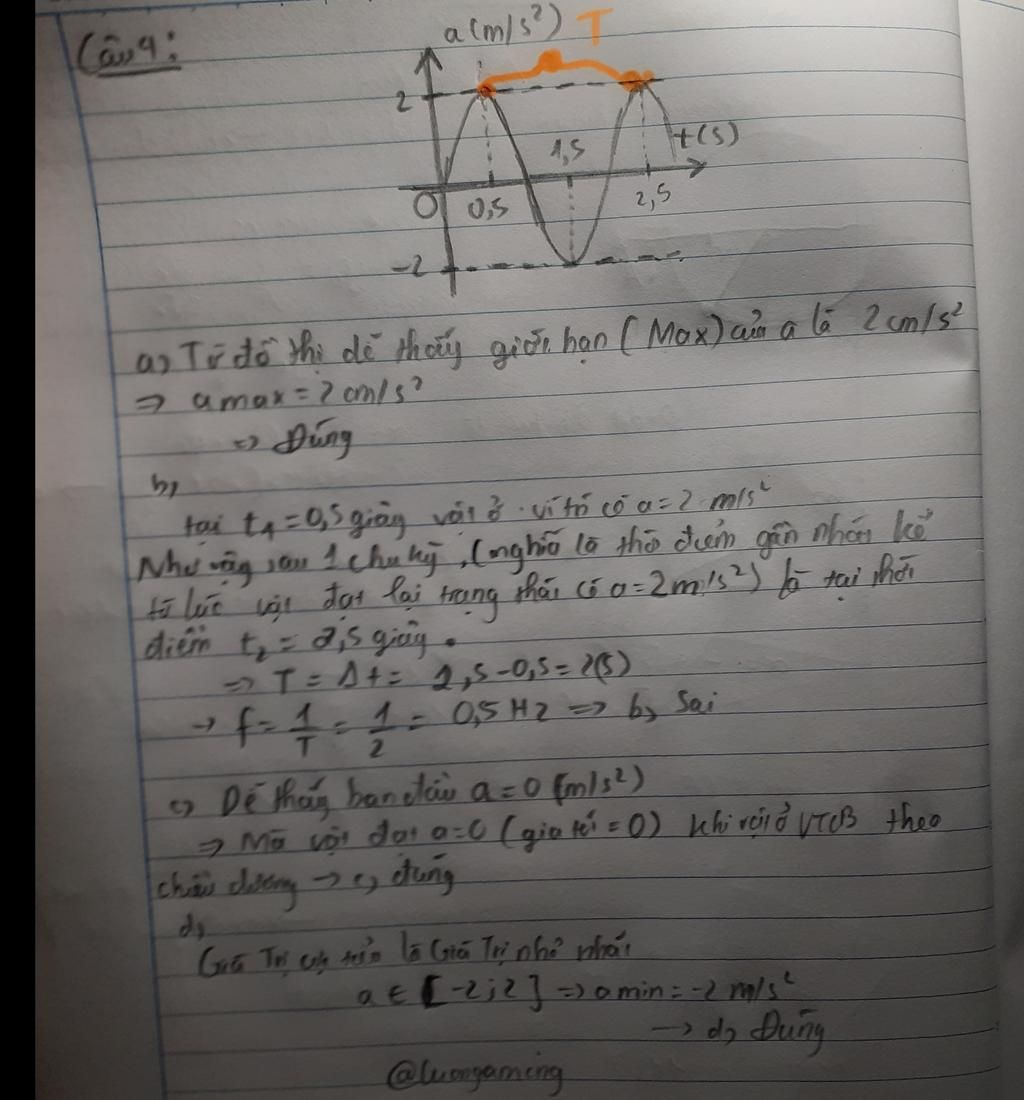 Câu 4:
a(m/s²) T
2
1,5
t(s)
O 0,5 2,5
-2
a, Từ đồ thị dễ thấy giới hạn (Max) của a là 2 cm/s²
⇒ a max = 2 cm/s²
⇒ Đúng
b,
tại t₁ = 0,5 giây vật ở vị trí có a = 2 m/s²
Như vậy sau 1 chu kỳ, (nghĩa là thời điểm gần nhất kể
từ lúc vật đạt lại trạng thái có a = 2 m/s²) là tại thời
điểm t₂ = 2,5 giây.
⇒ T = Δt = 2,5 - 0,5 = 2(s)
→ f = 1/T = 1/2 = 0,5 Hz ⇒ b, Sai
c, Dễ thấy ban đầu a = 0 (m/s²)
⇒ Mà vật đạt a = 0 (gia tốc = 0) khi vật ở VTCB theo
chiều dương → c, đúng
d,
Giá Trị cực tiểu là Giá Trị nhỏ nhất
a ∈ [-2;2] ⇒ a min = -2 m/s²
→ d, Đúng
@luongaming